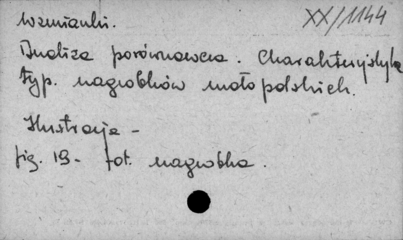 Wzmianki.
XX/1144
Analiza porównawcza. Charakterystyka
typ. nagrobków małopolskich.
Ilustracje -
fig. 19 - fot. nagrobka.